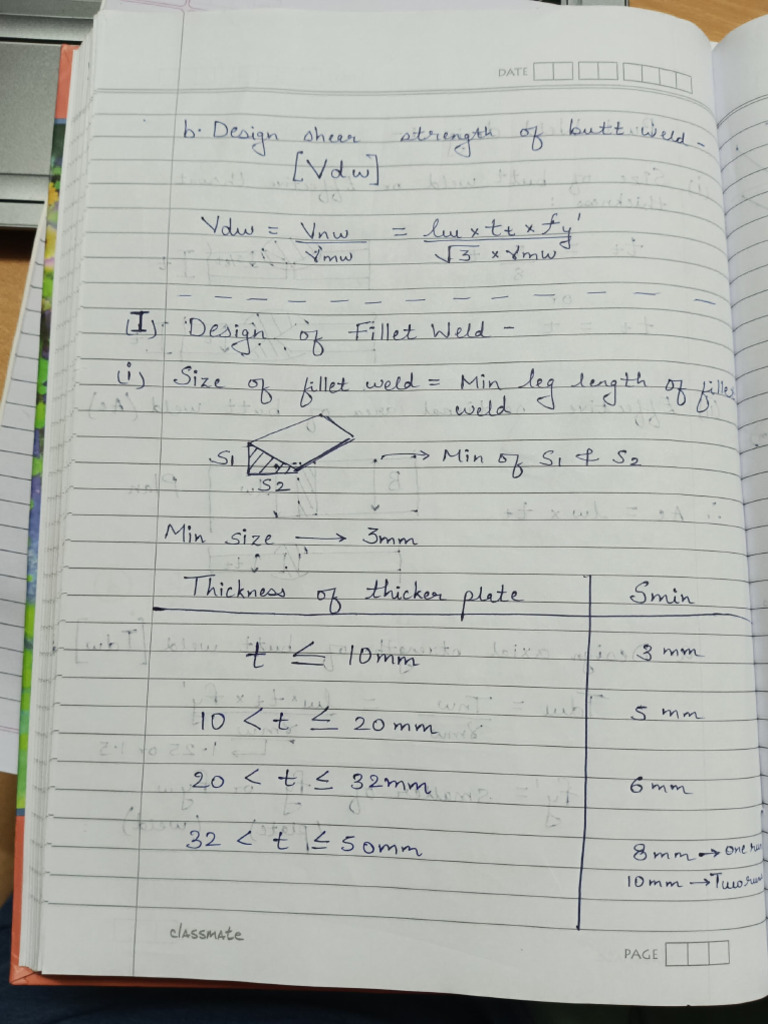 DATE
b. Design shear strength of butt weld -
[Vdw]
Vdw = Vnw / γmw = lw x tt x fy' / √3 x γmw
(I) Design of Fillet Weld -
(i) Size of fillet weld = Min leg length of fillet
weld
S1 → Min of S1 & S2
S2
Min size → 3mm
Thickness of thicker plate Smin
t ≤ 10mm 3 mm
10 < t ≤ 20mm 5 mm
20 < t ≤ 32mm 6 mm
32 < t ≤ 50mm 8mm → one run
10mm → Two run
classmate
PAGE